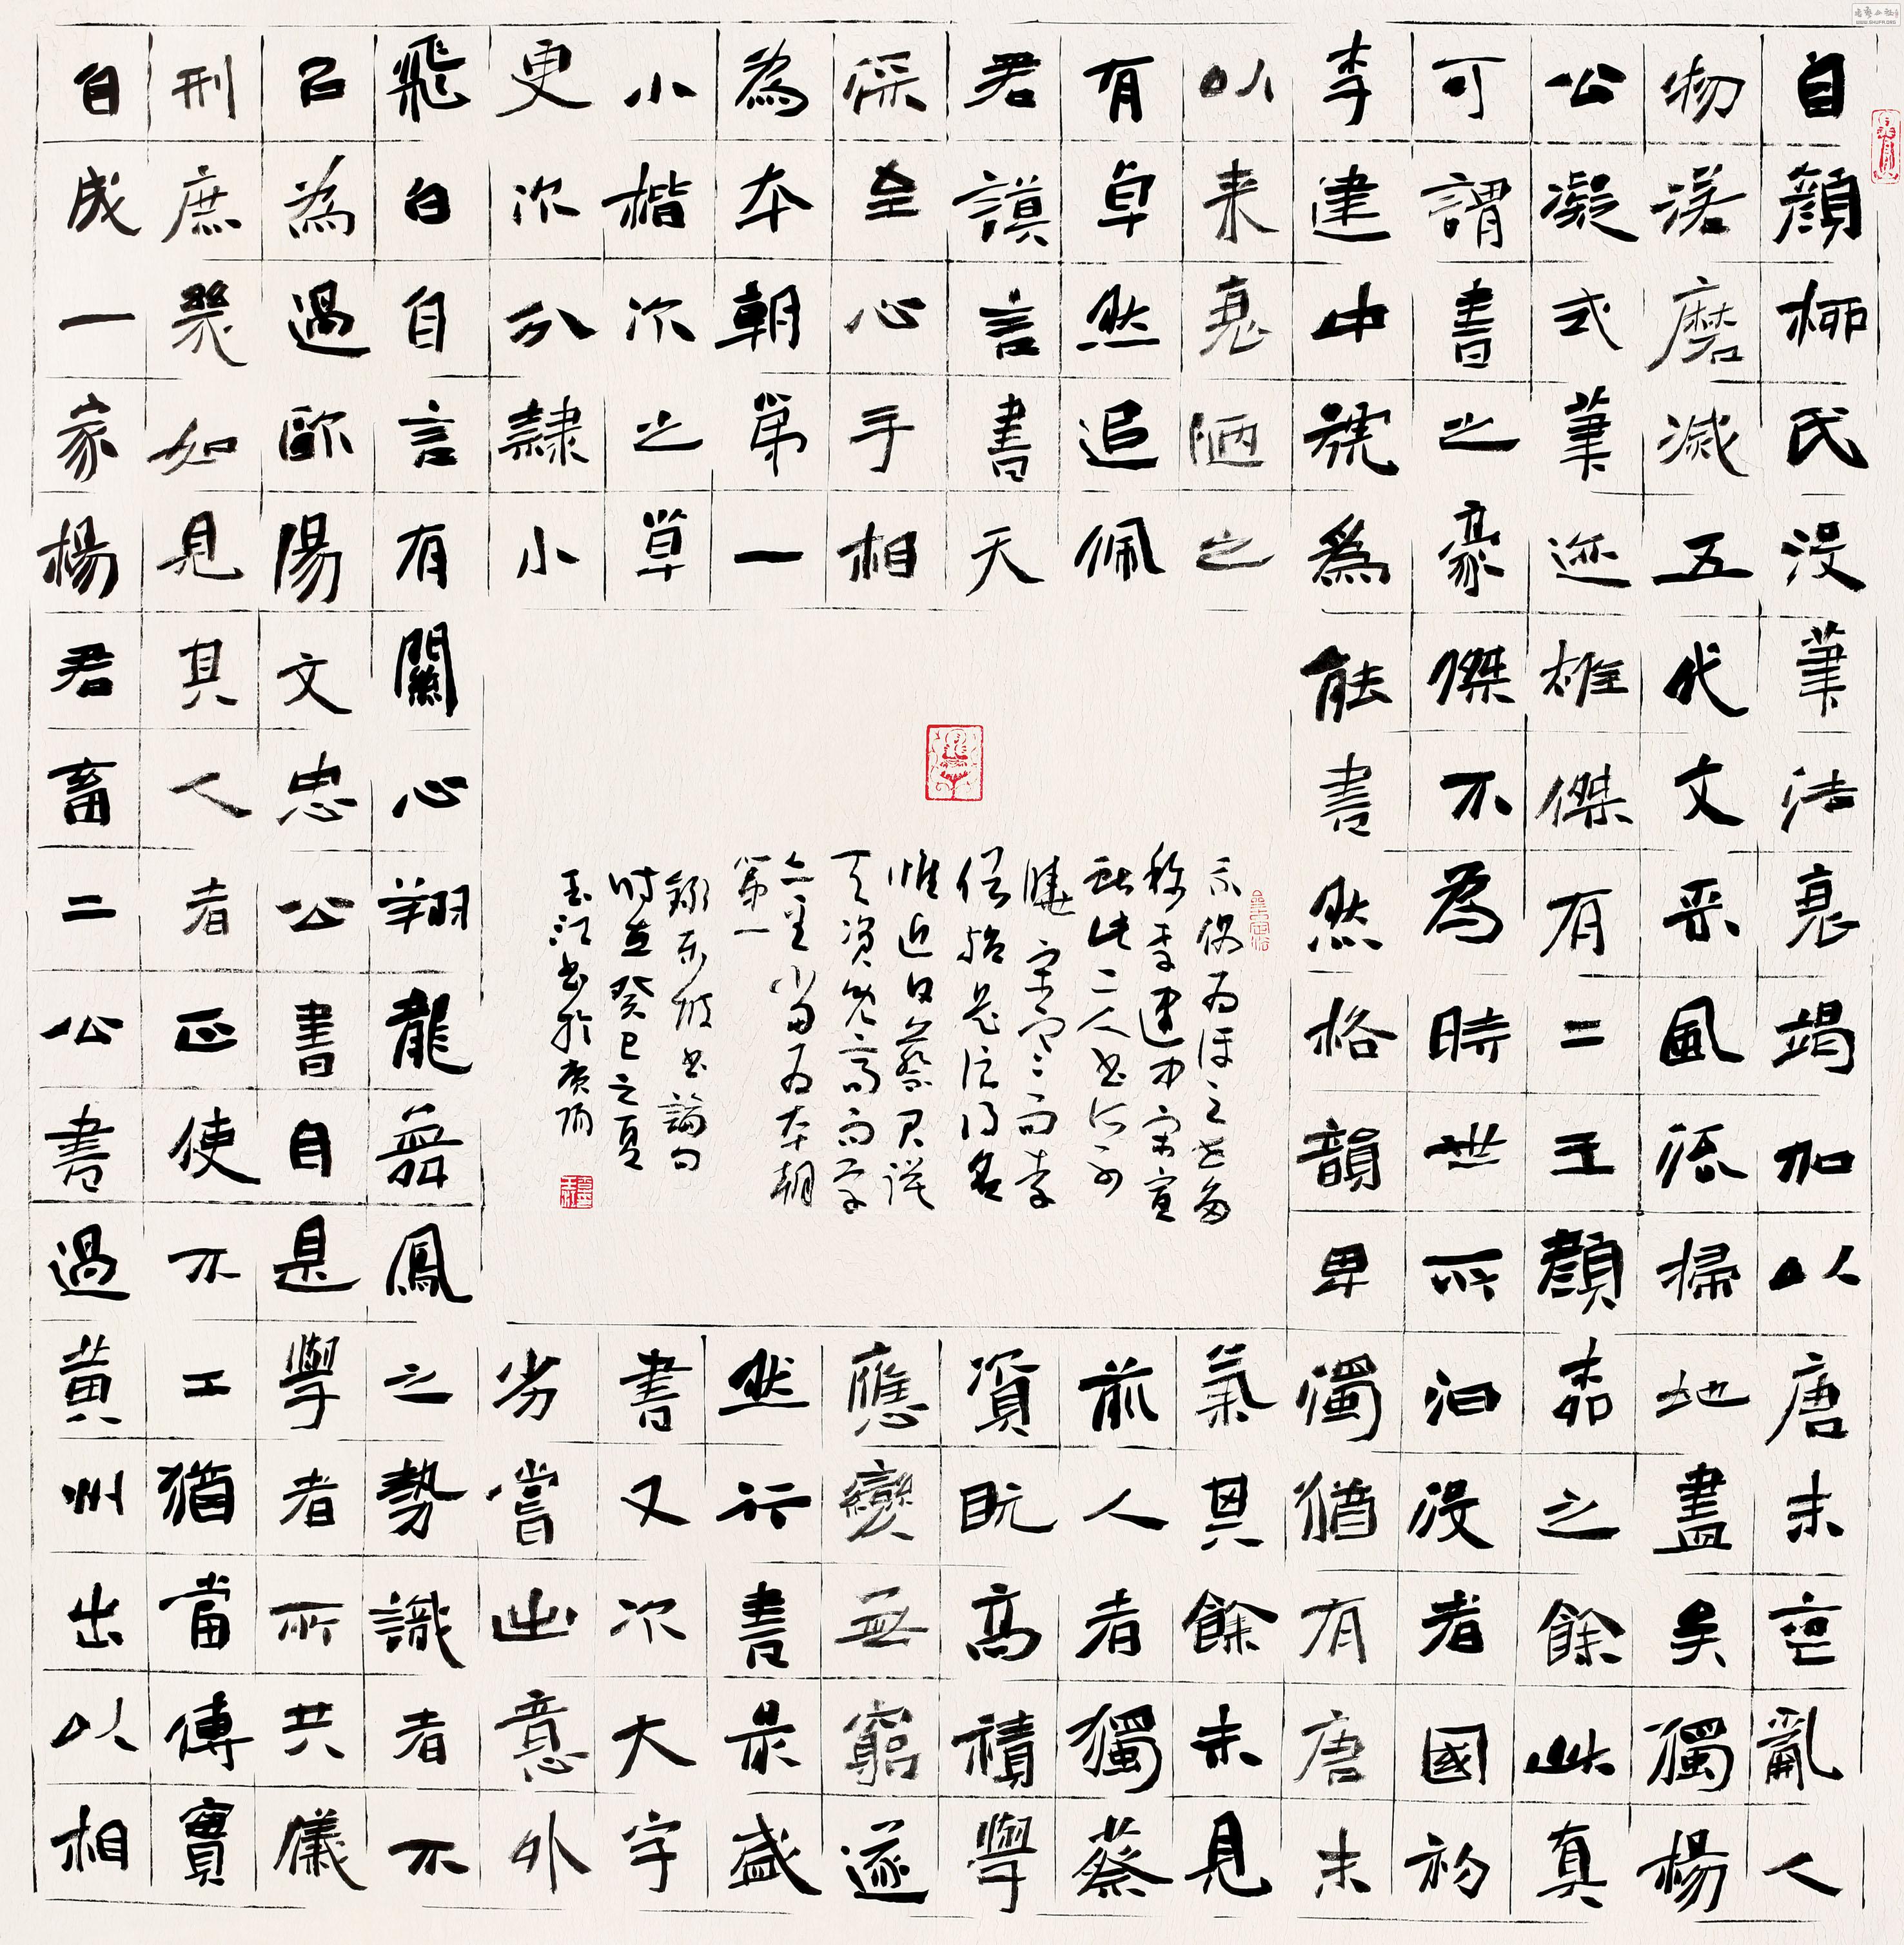 自顏柳氏沒筆法衰竭加以唐末喪亂人
物落磨滅五代文采風流掃地盡矣獨楊
公凝式筆迹雄傑有二王顏柳之餘此真
可謂書之豪傑不為時世所汩沒者國初
李建中號為能書然格韻卑濁猶有唐末
以來衰陋之
氣其餘未見
有卓然追佩
前人者獨蔡
君謨言書天
資既高積學
深至心手相
應變無窮遂
為本朝第一
然行書最盛
小楷次之草
書又次大字
更次分隸小
劣嘗出意外
飛白自言有關心翔龍舞鳳之勢識者不
㠯為過歐陽文忠公書自是學者所共儀
刑庶幾如見其人者正使不工猶當傳寶
自成一家楊君畜二公書過黃州出以相
示偶为評之世多
称李建中宋宣
獻此二人書所不
曉宋寒而李
俗殆是浪得名
惟近日蔡君謨
天資既高而學
亦至當为本朝
第一
錄東坡書論句
时在癸巳之夏
玉江書於